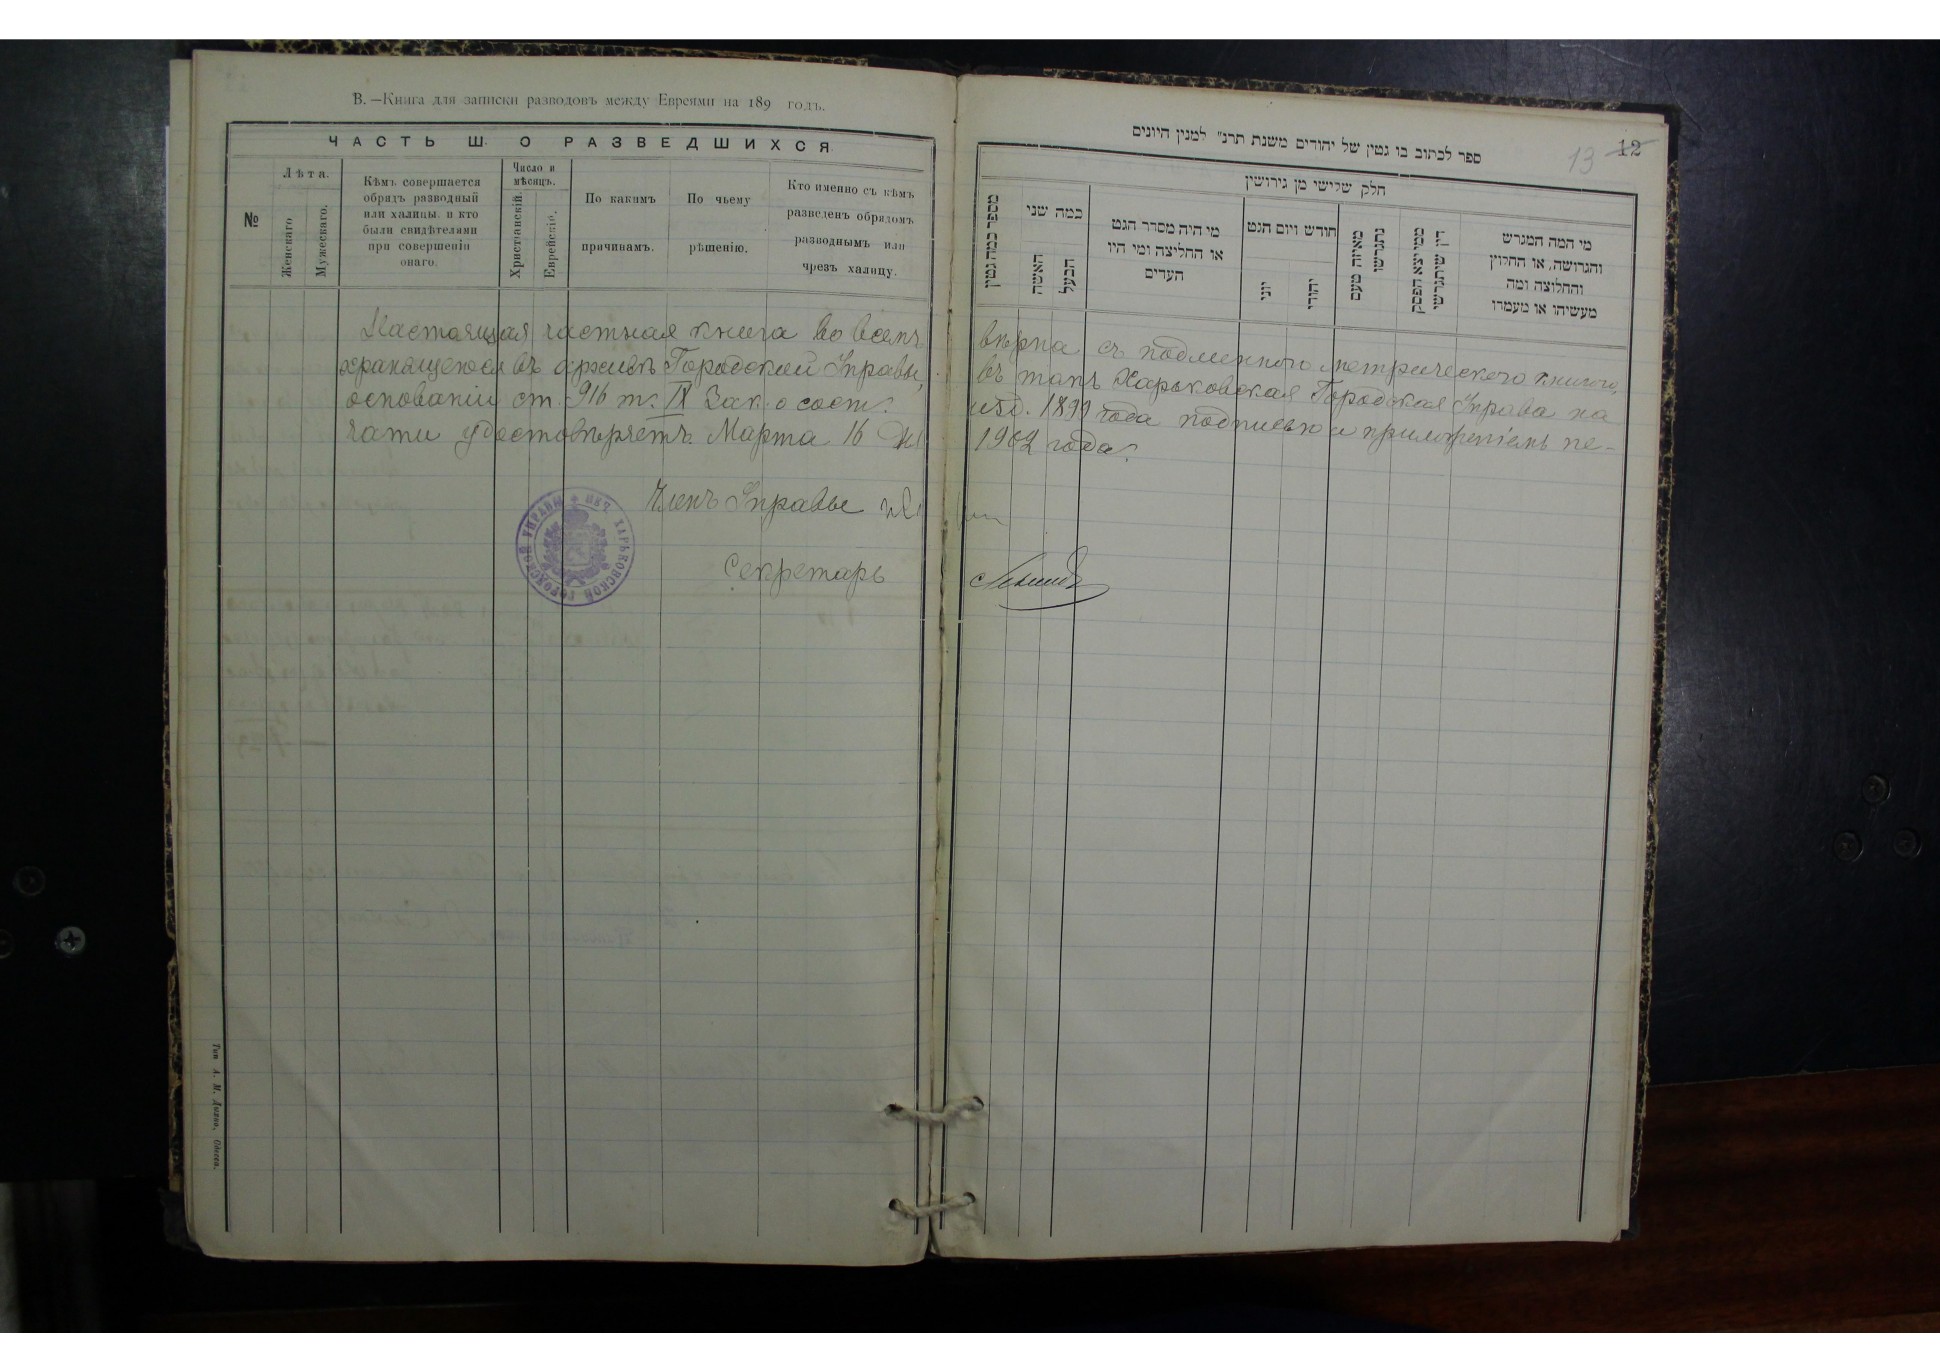 В. —Книга для записки разводовъ между Евреями на 189 годъ.
ЧАСТЬ Ш. О РАЗВЕДШИХСЯ
№
Лѣта.
Женскаго
Мужескаго.
Кѣмъ совершается
обрядъ разводный
или халицы, и кто
были свидѣтелями
при совершеніи
онаго.
Число и
мѣсяцъ.
Христіанскій.
Еврейскій.
По какимъ
причинамъ.
По чьему
рѣшенію.
Кто именно съ кѣмъ
разведенъ обрядомъ
разводнымъ или
чрезъ халицу.
ספר לכתוב בו גטין של יהודים משנת תרנ״ למנין היונים
13 12
חלק שלישי מן גירושין
מספר כמה גטין
כמה שני
האשה
הבעל
מי היה מסדר הגט
או החליצה ומי היו
העדים
חודש ויום הגט
יוני
יהודי
מאיזה טעם
נתגרשו
ממי יצא הפסק
דין שיתגרשו
מי המה המגרש
והגרושה, או החלוץ
והחלוצה ומה
מעשיהו או מעמדו
Настоящая частная книга во всемъ вѣрна съ подлинною метрическою книгою,
хранящеюся въ архивѣ Городской Управы, въ томъ Харьковская Городская Управа на
основаніи ст. 916 т. IX Зак. о сост. изд. 1899 года подписью и приложеніемъ пе-
чати удостовѣряетъ. Марта 16 дня 1902 года.
Членъ Управы
Секретарь
ХАРЬКОВСКОЙ ГОРОДСКОЙ УПРАВЫ
Тип А. М. Дыхно, Одесса.